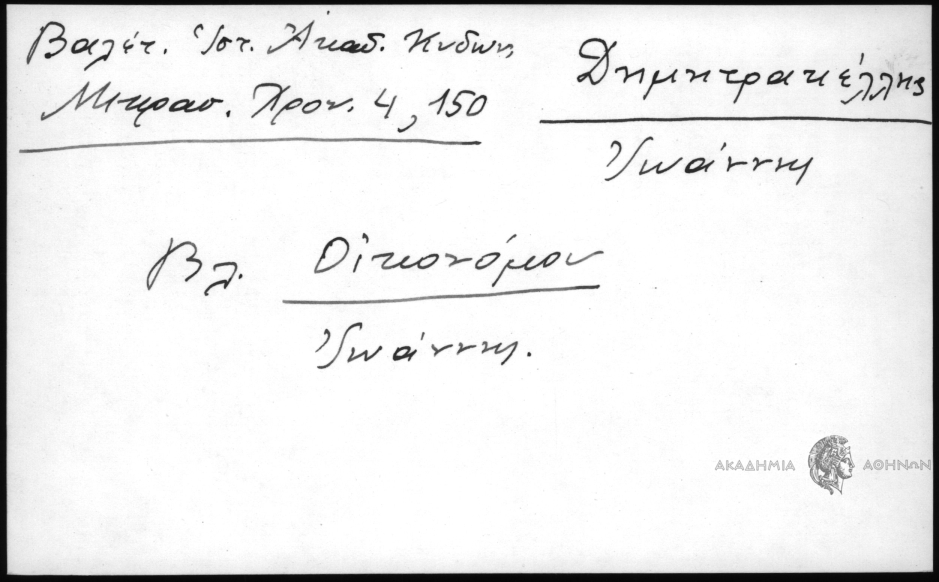 Βαλέτ. Ἱστ. Ἀκαδ. Κυδων,
Μικρασ. Χρον. 4, 150
Δημητρακέλλης
Ἰωάννης
Βλ. Οἰκονόμου
Ἰωάννης.
ΑΚΑΔΗΜΙΑ ΑΘΗΝΩΝ